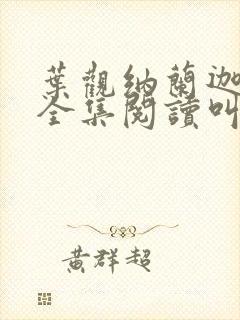 葉觀納蘭迦
全集閱讀叫
黃群超